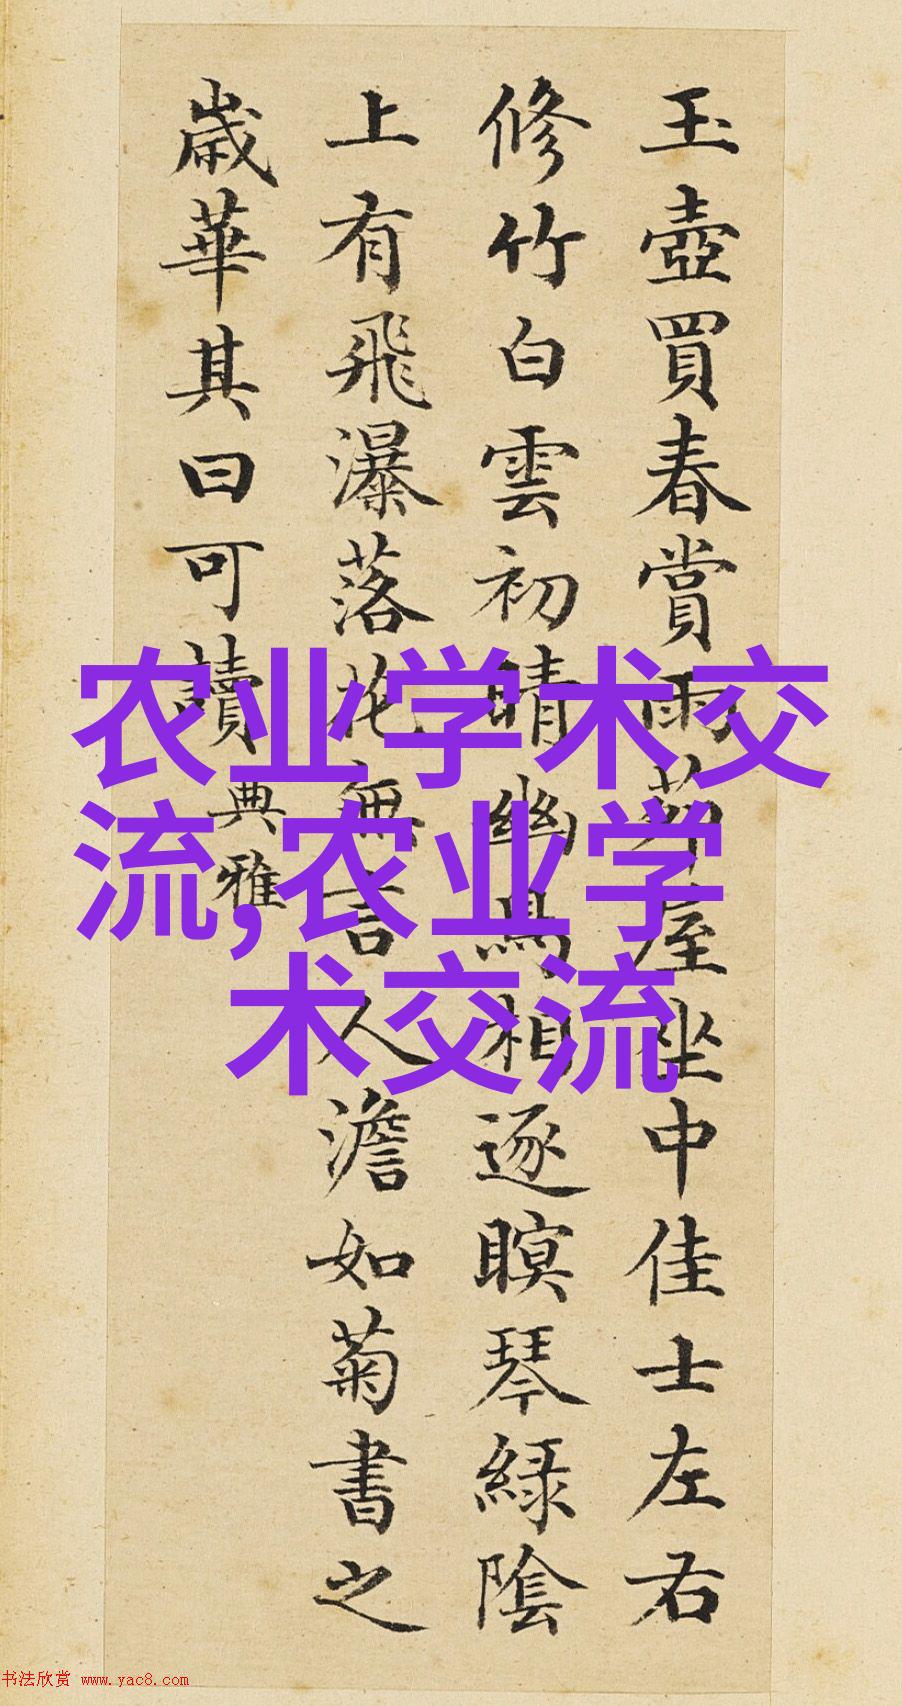 玉壺買春賞雨茆屋坐中佳士左右
修竹白雲初晴幽鳥相逐瞑琴綠陰
上有飛瀑落花無言人澹如菊書之
歲華其曰可讀
典雅
农业学术交
流,农业学
术交流
书法欣赏 www.yac8.com